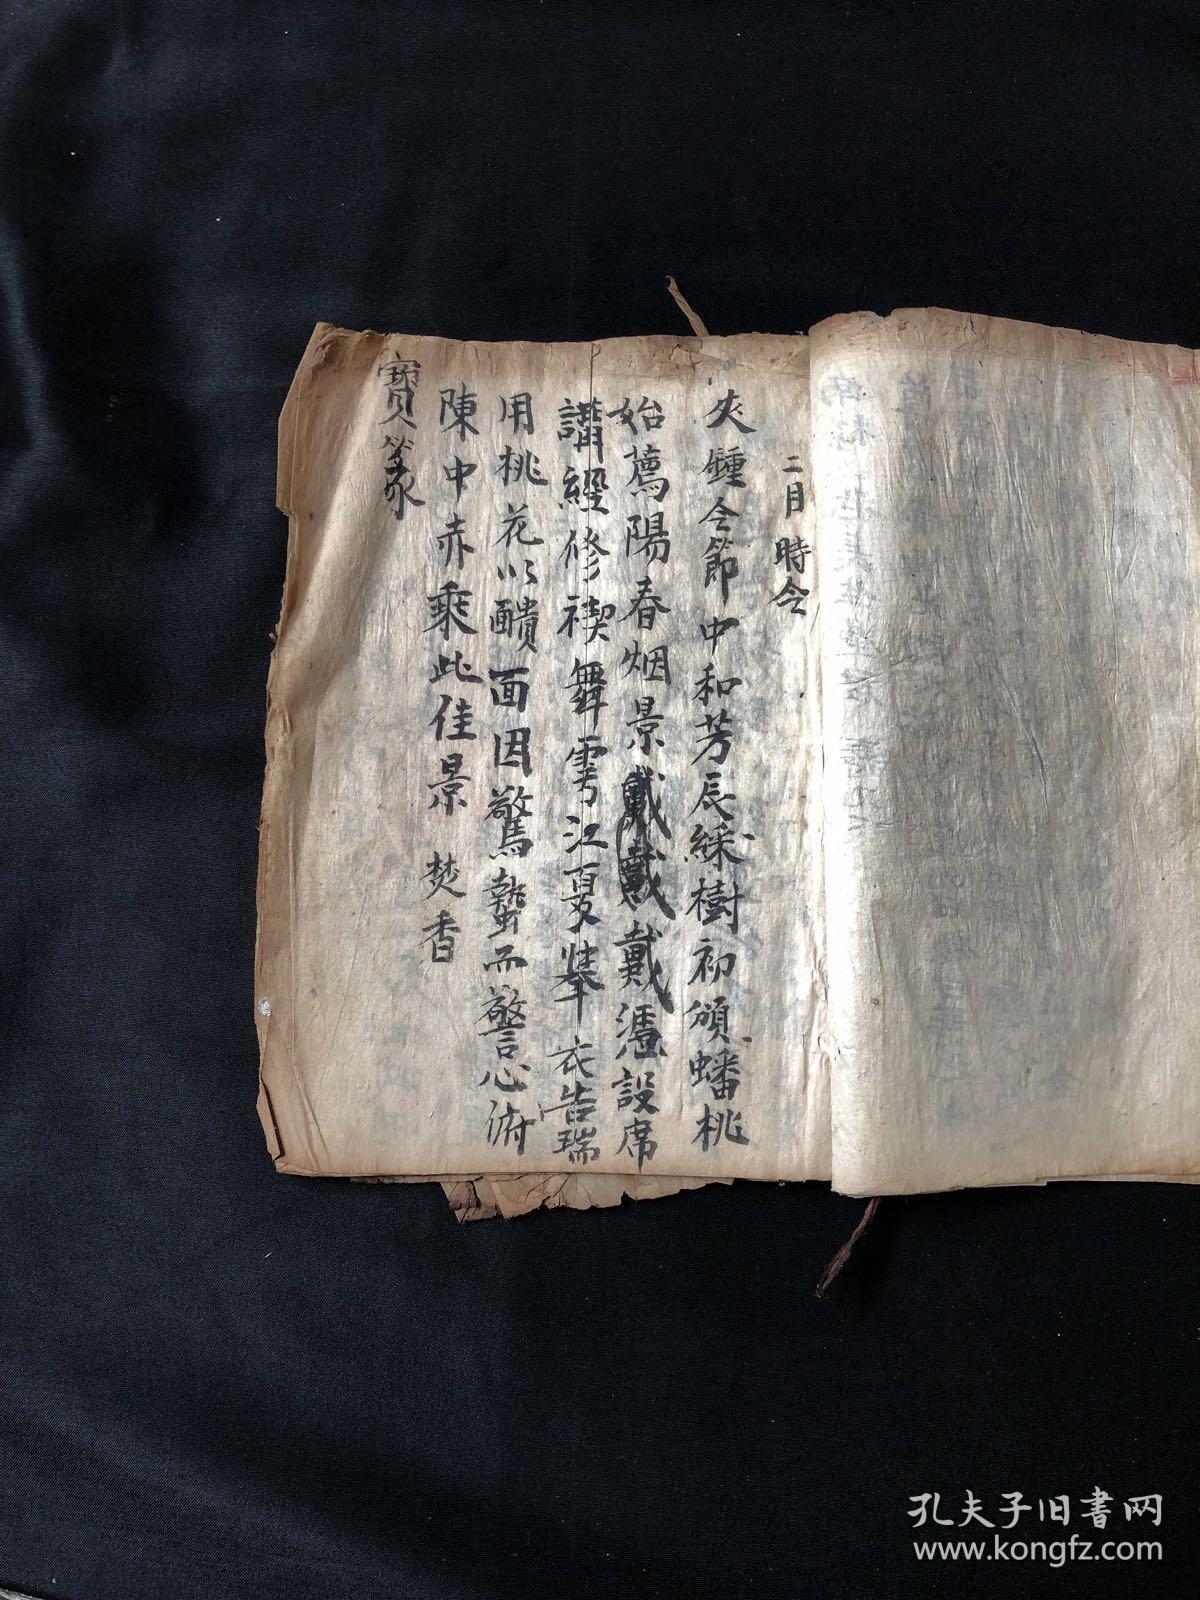 二月 時令
夾鍾令節中和芳辰綵樹初頒蟠桃
始薦陽春烟景戴戴戴憑設席
講經修禊舞雩江夏搴衣告瑞
用桃花以靧面因驚蟄而警心俯
陳中赤乘此佳景 焚香
寶篆
孔夫子旧書网
www.kongfz.com